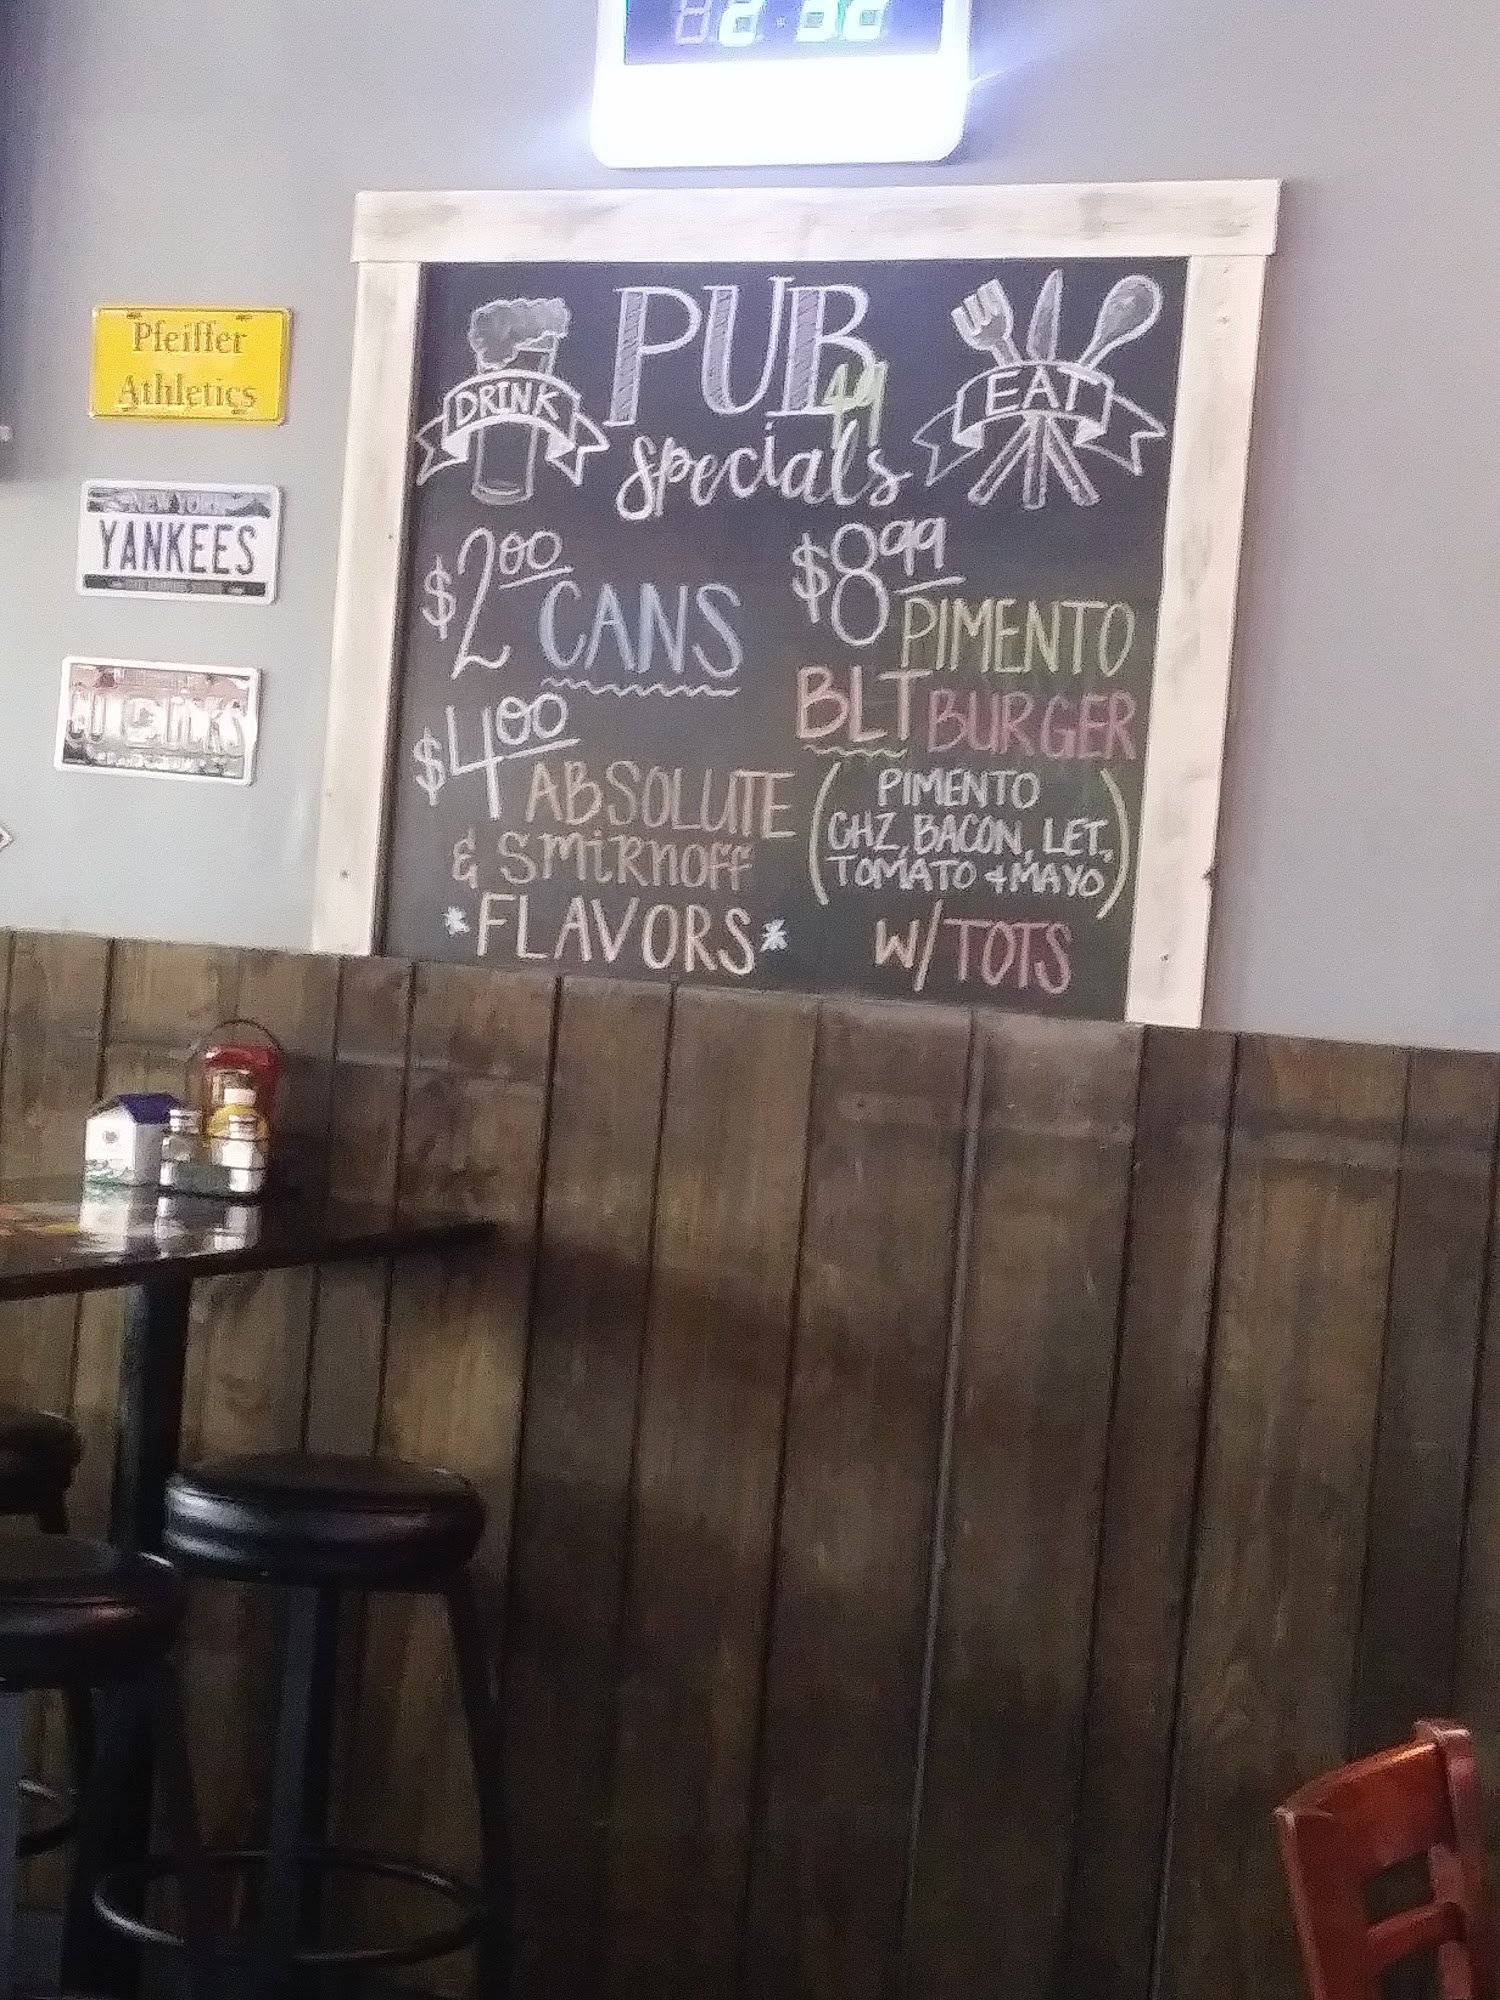 2:32
Pfeiffer
Athletics
NEW YORK
YANKEES
DRINK
PUB
49
specials
EAT
$2.00
CANS
$4.00
ABSOLUTE
& SMiRNOFF
*FLAVORS*
$8.99
PIMENTO
BLT BURGER
(PIMENTO
CHZ, BACON, LET,
TOMATO + MAYO)
W/TOTS